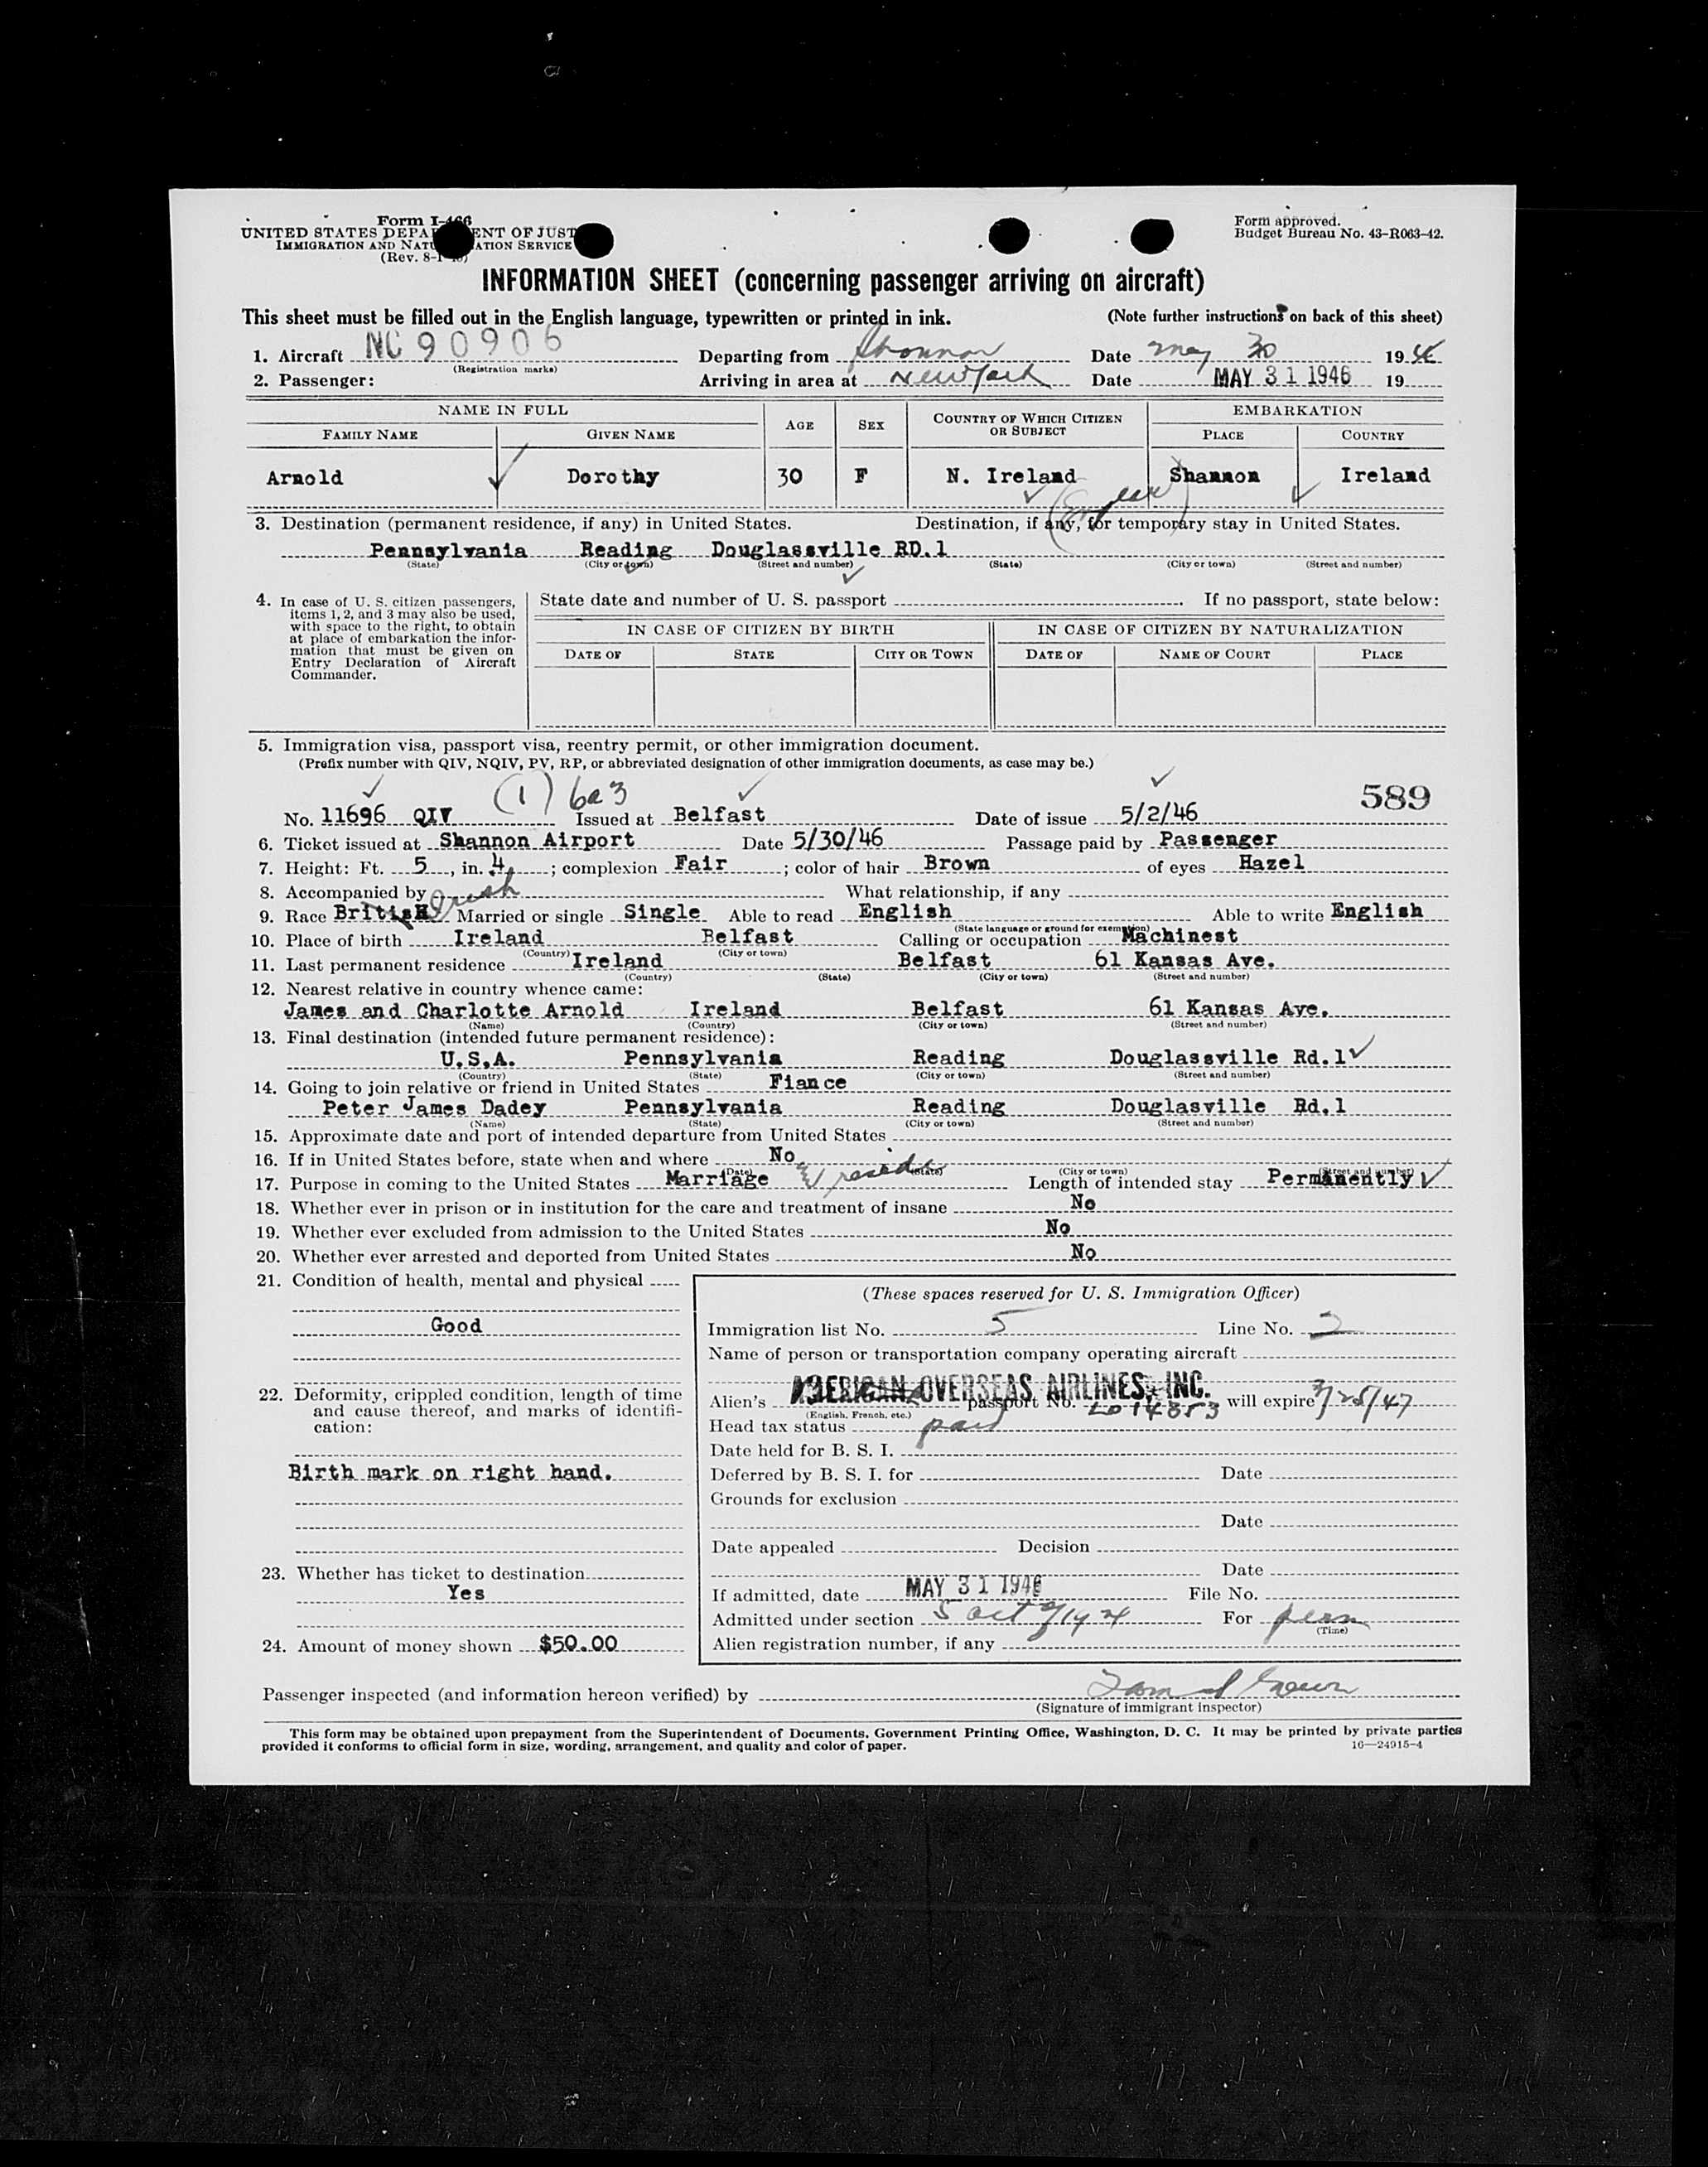 Form I-466
UNITED STATES DEPARTMENT OF JUSTICE
IMMIGRATION AND NATURALIZATION SERVICE
(Rev. 8-1-45)
Form approved.
Budget Bureau No. 43-R063-42.
INFORMATION SHEET (concerning passenger arriving on aircraft)
This sheet must be filled out in the English language, typewritten or printed in ink. (Note further instructions on back of this sheet)
1. Aircraft NC 90906 Departing from Shannon Date May 30 1946
(Registration marks)
2. Passenger: Arriving in area at New York Date MAY 31 1946 19
NAME IN FULL AGE SEX COUNTRY OF WHICH CITIZEN OR SUBJECT EMBARKATION
FAMILY NAME GIVEN NAME PLACE COUNTRY
Arnold Dorothy 30 F N. Ireland Shannon Ireland
3. Destination (permanent residence, if any) in United States. Destination, if any, for temporary stay in United States.
Pennsylvania Reading Douglassville RD.1
(State) (City or town) (Street and number) (State) (City or town) (Street and number)
4. In case of U. S. citizen passengers, items 1, 2, and 3 may also be used, with space to the right, to obtain at place of embarkation the information that must be given on Entry Declaration of Aircraft Commander.
State date and number of U. S. passport If no passport, state below:
IN CASE OF CITIZEN BY BIRTH IN CASE OF CITIZEN BY NATURALIZATION
DATE OF STATE CITY OR TOWN DATE OF NAME OF COURT PLACE
5. Immigration visa, passport visa, reentry permit, or other immigration document.
(Prefix number with QIV, NQIV, PV, RP, or abbreviated designation of other immigration documents, as case may be.)
(1) 6a3 589
No. 11696 QIV Issued at Belfast Date of issue 5/2/46
6. Ticket issued at Shannon Airport Date 5/30/46 Passage paid by Passenger
7. Height: Ft. 5, in. 4; complexion Fair; color of hair Brown of eyes Hazel
8. Accompanied by What relationship, if any
Irish
9. Race British Married or single Single Able to read English Able to write English
(State language or ground for exemption)
10. Place of birth Ireland Belfast Calling or occupation Machinest
(Country) (City or town)
11. Last permanent residence Ireland Belfast 61 Kansas Ave.
(Country) (State) (City or town) (Street and number)
12. Nearest relative in country whence came:
James and Charlotte Arnold Ireland Belfast 61 Kansas Ave.
(Name) (Country) (City or town) (Street and number)
13. Final destination (intended future permanent residence):
U.S.A. Pennsylvania Reading Douglassville Rd.1
(Country) (State) (City or town) (Street and number)
14. Going to join relative or friend in United States Fiance
Peter James Dadey Pennsylvania Reading Douglasville Rd.1
(Name) (State) (City or town) (Street and number)
15. Approximate date and port of intended departure from United States
16. If in United States before, state when and where No
(Date) (State) (City or town) (Street and number)
17. Purpose in coming to the United States Marriage & reside Length of intended stay Permanently
18. Whether ever in prison or in institution for the care and treatment of insane No
19. Whether ever excluded from admission to the United States No
20. Whether ever arrested and deported from United States No
21. Condition of health, mental and physical
Good
22. Deformity, crippled condition, length of time and cause thereof, and marks of identification:
Birth mark on right hand.
23. Whether has ticket to destination
Yes
24. Amount of money shown $50.00
(These spaces reserved for U. S. Immigration Officer)
Immigration list No. 5 Line No. 2
Name of person or transportation company operating aircraft
AMERICAN OVERSEAS AIRLINES, INC.
Alien's passport No. will expire
(English, French, etc.)
Head tax status paid
Date held for B. S. I.
Deferred by B. S. I. for Date
Grounds for exclusion
Date
Date appealed Decision
Date
If admitted, date MAY 31 1946 File No.
Admitted under section 5 act of 1924 For perm
(Time)
Alien registration number, if any
Passenger inspected (and information hereon verified) by
(Signature of immigrant inspector)
This form may be obtained upon prepayment from the Superintendent of Documents, Government Printing Office, Washington, D. C. It may be printed by private parties
provided it conforms to official form in size, wording, arrangement, and quality and color of paper. 16—24915-4